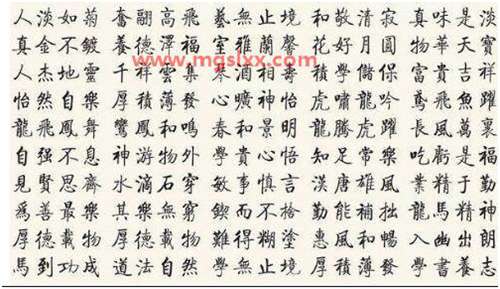 人淡如菊 奮翮高飛 藝無止境 和敬清寂 真味是淡
真金不鍍 養德澤福 室雅蘭馨 花好月圓 物華天寶
www.mqslxx.com
人杰地靈 千祥雲集 琴酒相 積學儲 富貴吉祥
怡然自樂 厚積薄發 心曠神怡 虎嘯龍吟 鳶飛魚躍
龍飛鳳舞 鸞鳳和鳴 春和景明 龍騰虎躍 長風萬裏
自强不息 神游物外 學貴心悟 知足常樂 吃虧是福
見賢思齊 水滴石穿 敏事慎言 漢唐雄風 業精于勤
爲善最樂 其樂無窮 鍥而不捨 勤能補拙 龍馬精神
厚德載物 厚德載物 難得糊塗 惠風和暢 入幽出朗
馬到功成 道法自然 學無止境 厚積薄發 學書養志